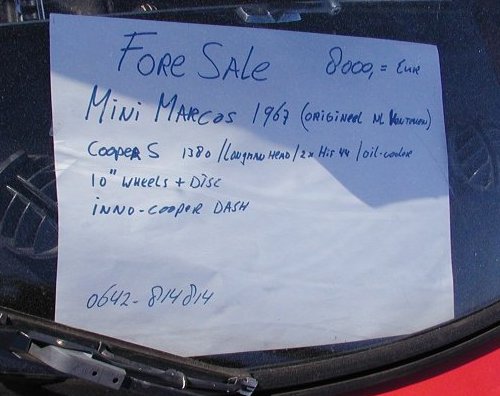 Fore Sale 8000,= Eur
Mini Marcos 1967 (origineel M
Cooper S 1380 / Longman Head / 2x His 44 / oil-cooler
10" wheels + Disc
inno-cooper Dash
0642-814814